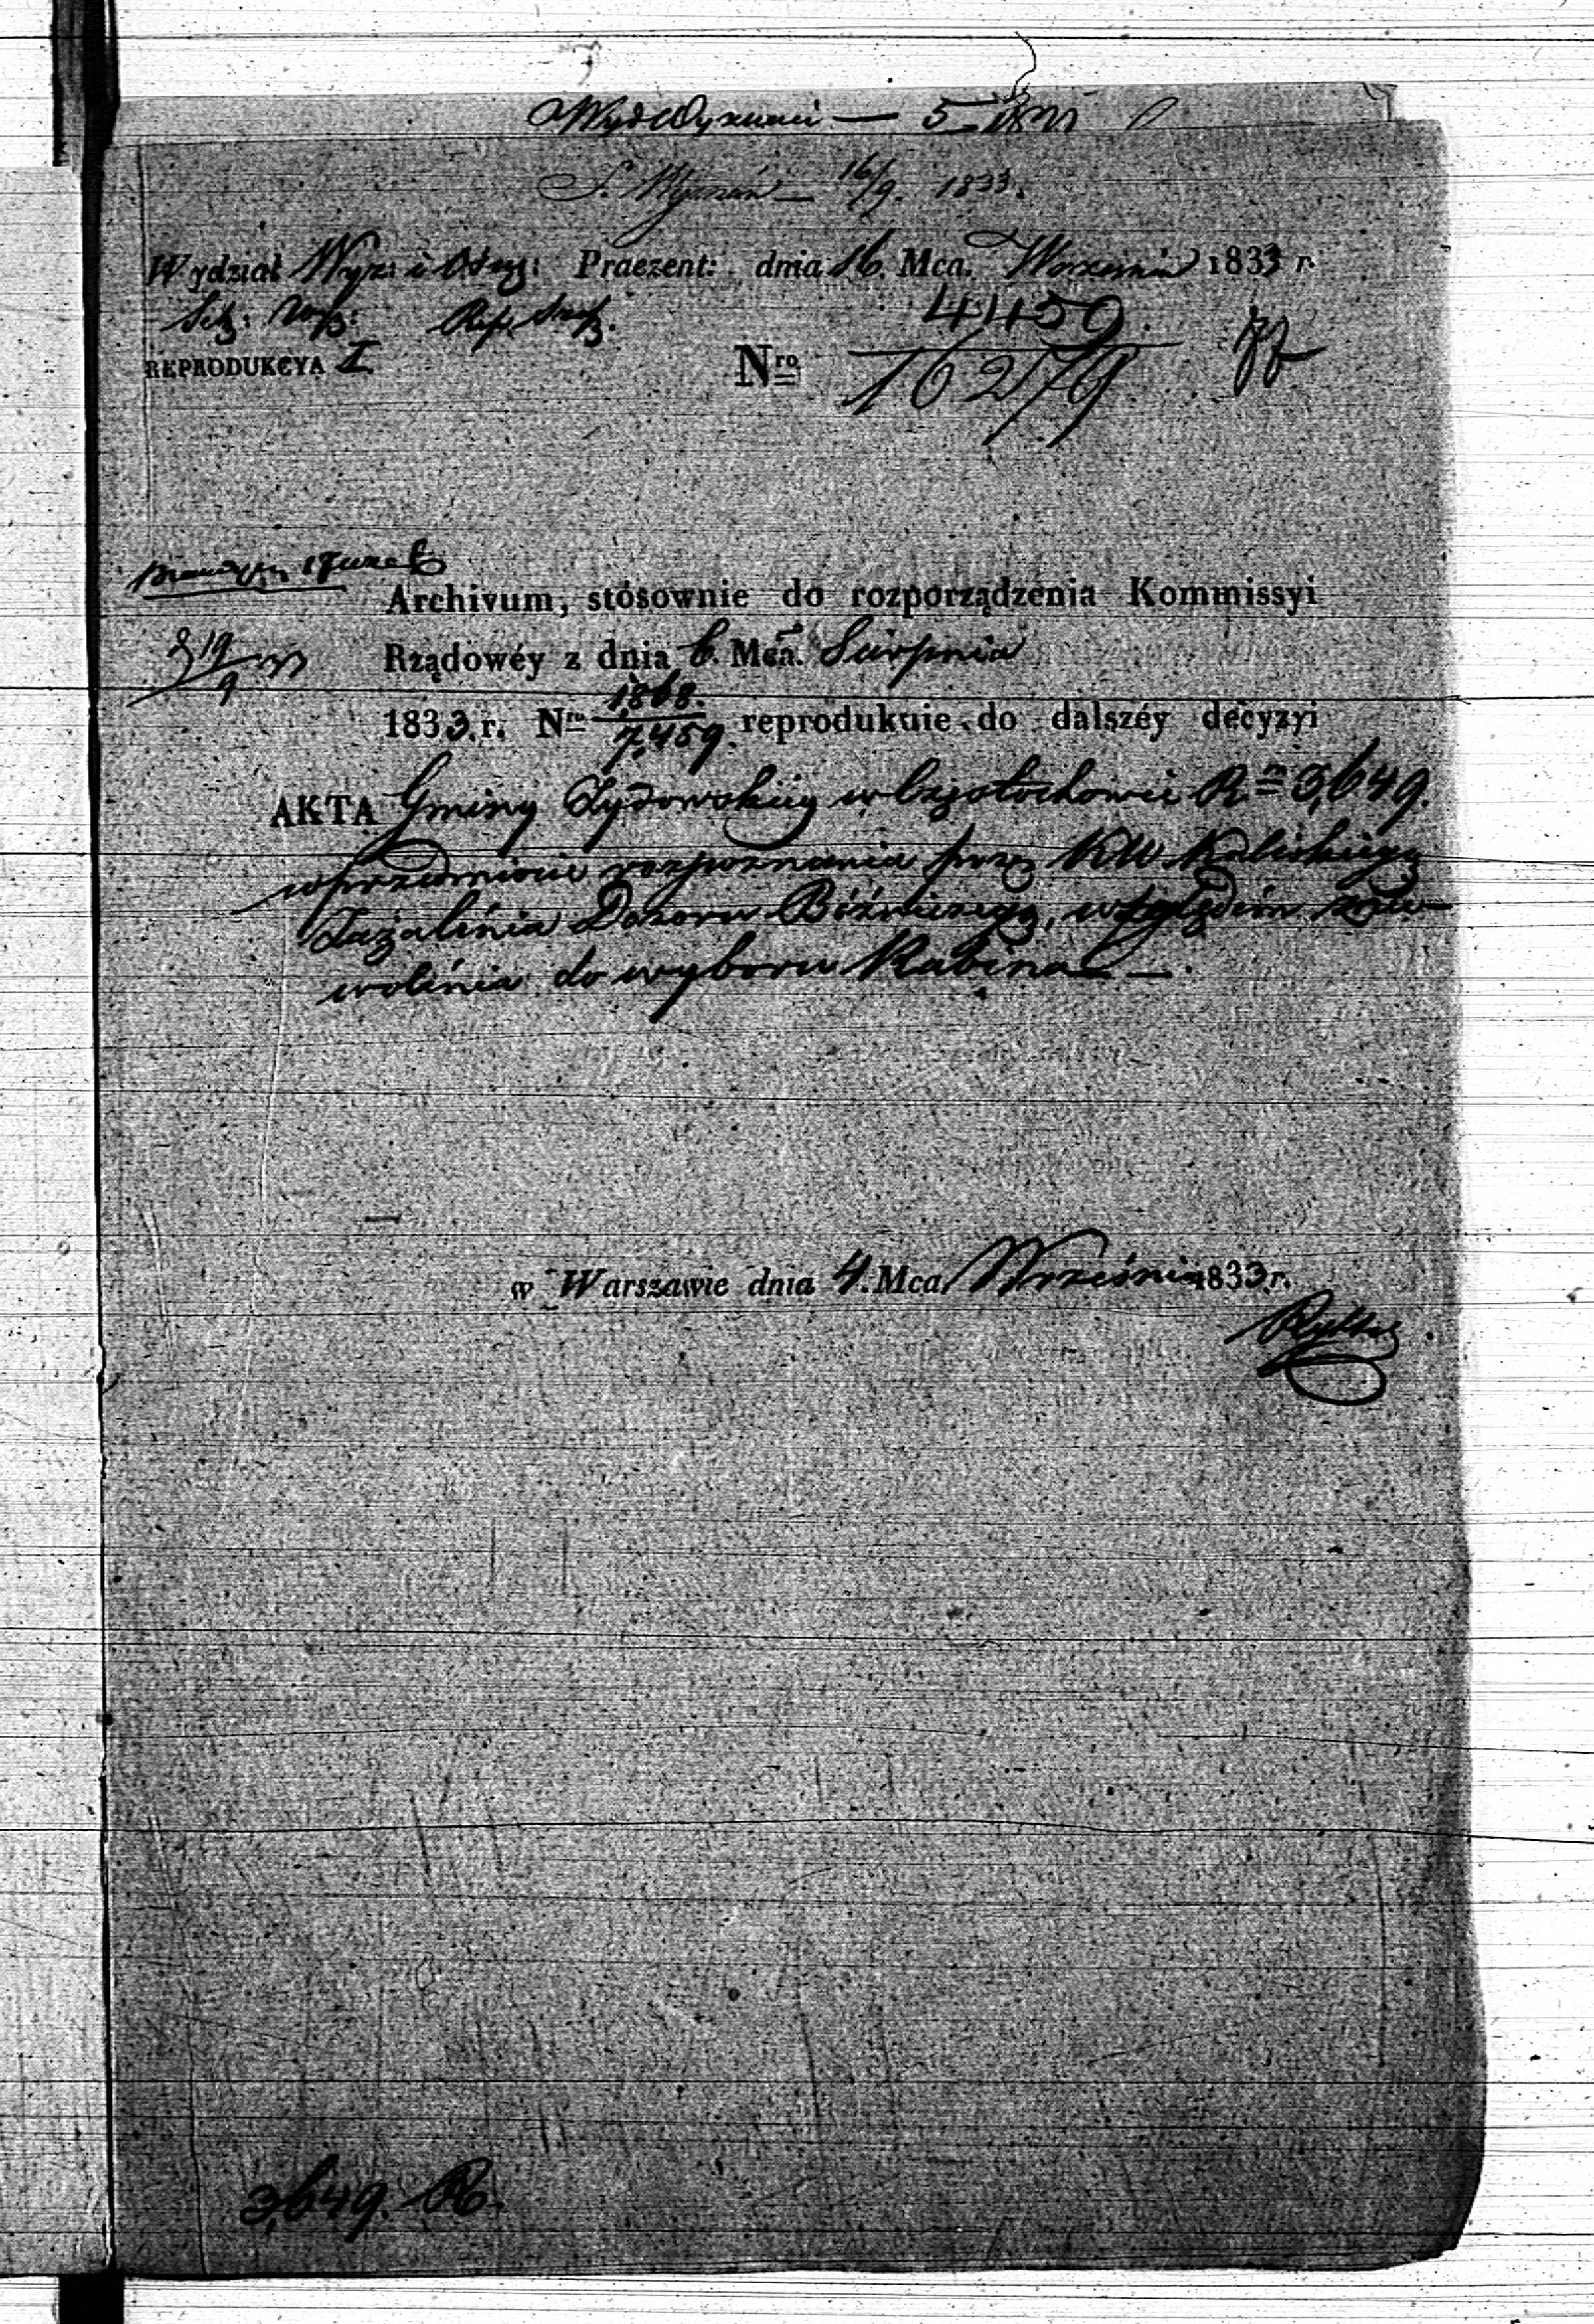 Wyd Wyznań — 5
S. Wyznań — 16/9. 1833.
Wydział Wyz: i Ośw: Praezent: dnia 16. Mca. Września 1833 r.
Sek: Wyz:
4459.
REPRODUKCYA I. Nro 16279
Archivum, stósownie do rozporządzenia Kommissyi
19/9 33
Rządowéy z dnia 6. Mca. Sierpnia
1833. r. Nro 1868./7459. reprodukuie do dalszéy decyzyi
AKTA Gminy Żydowskiey w Częstochowie R = 3,649.
w przedmiocie rozpoznania przez KW Kaliskiego
Zażalenia Dozoru Bóżniczego, względem zez-
wolenia do wyboru Rabina —.
w Warszawie dnia 4. Mca Września 1833 r.
3,649. R.